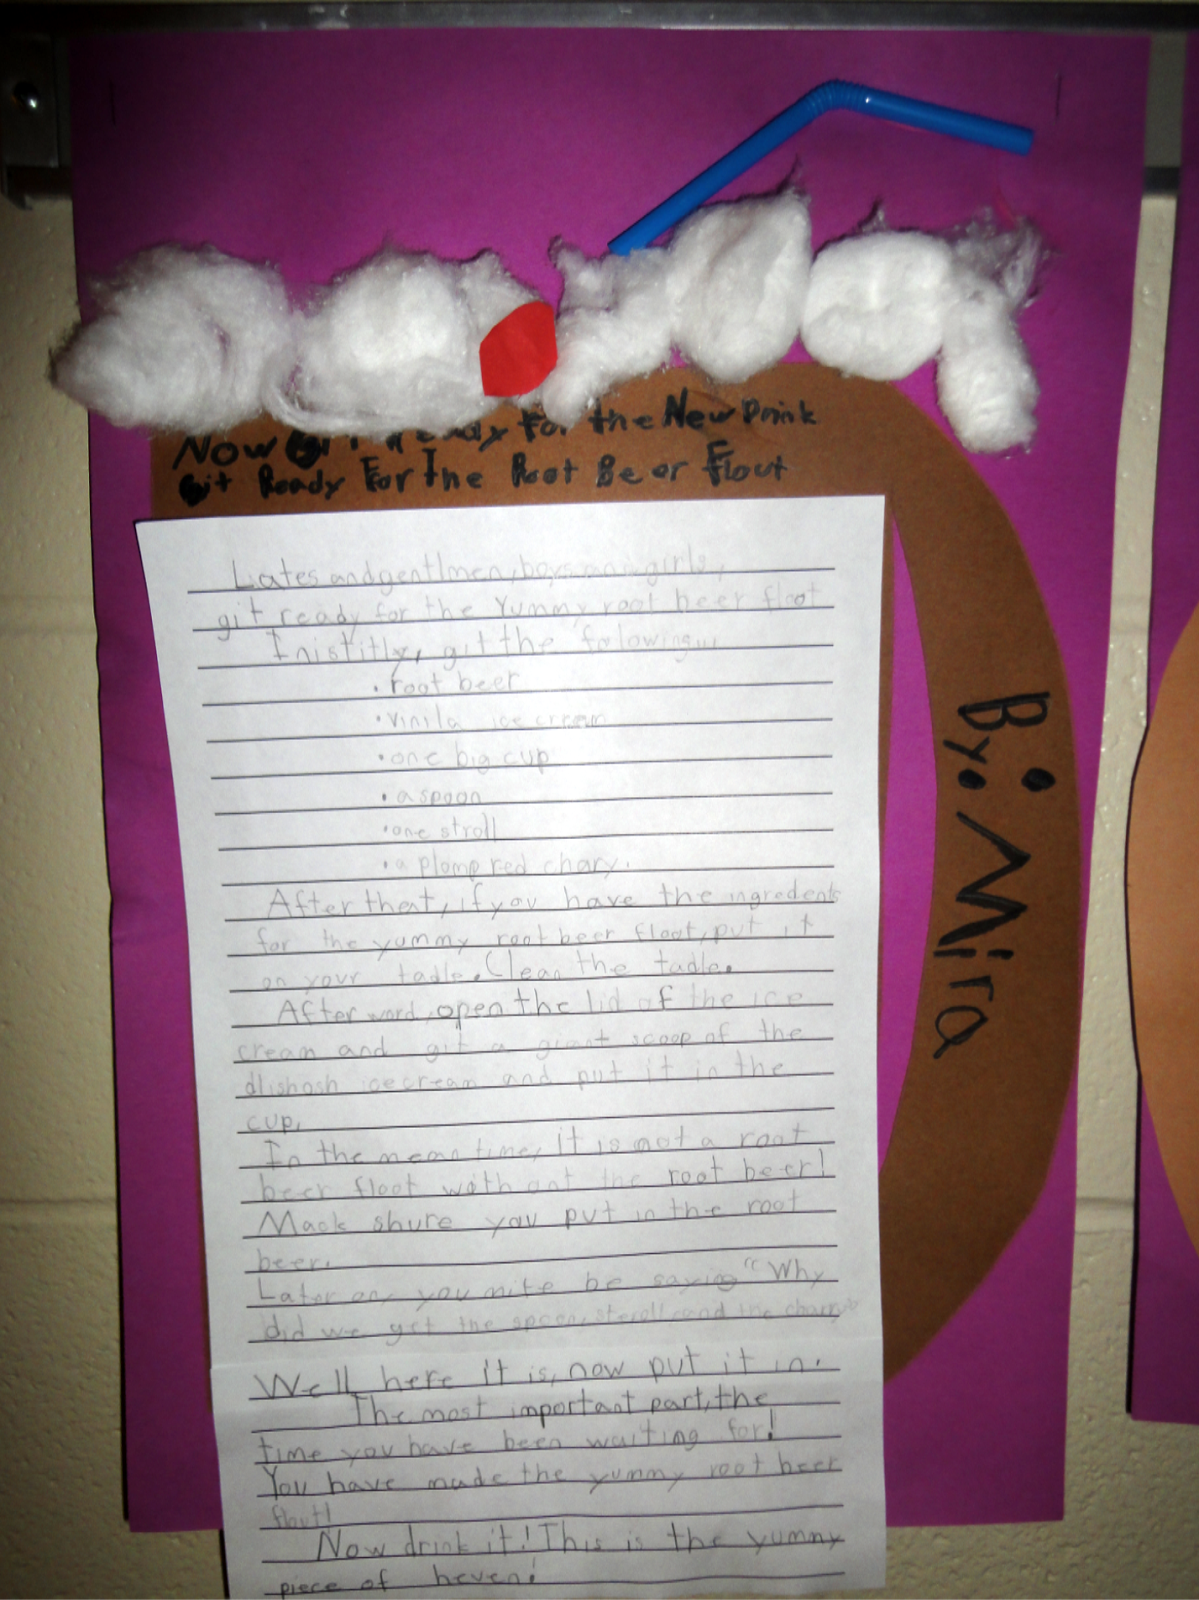 Now Git Ready for the New Drink
Git Ready For The Root Beer Flout
Lates and gentlmen, boys and girls,
git ready for the Yummy root beer floot
Inistitly, git the folowing...
· root beer
· vinila ice cream
· one big cup
· a spoon
· one stroll
· a plomp red chary.
After that, if you have the ingredents
for the yummy root beer float, put it
on your tadle. Clean the tadle.
After word, open the lid of the ice
cream and git a giant scoop of the
dlishosh icecream and put it in the
cup.
In the mean time, it is not a root
beer floot without the root beer!
Mack shure you put in the root
beer.
Later on, you mite be saying "Why
did we get the spoon, stroll and the charry"
Well here it is, now put it in.
The most important part, the
time you have been waiting for!
You have made the yummy root beer
flout!
Now drink it! This is the yummy
piece of heven!
By: Mira